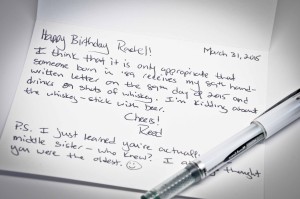 Happy Birthday
March 31, 2015
I think that it is only appropriate that
someone born in '89 receives my 89th hand-
written letter on the 89th day of 2015 and
drinks 89 shots of whiskey. I'm kidding about
the whiskey - stick with beer.
Cheers!
P.S. I just learned you're actually
middle sister - who knew? I thought
you were the oldest. ☺